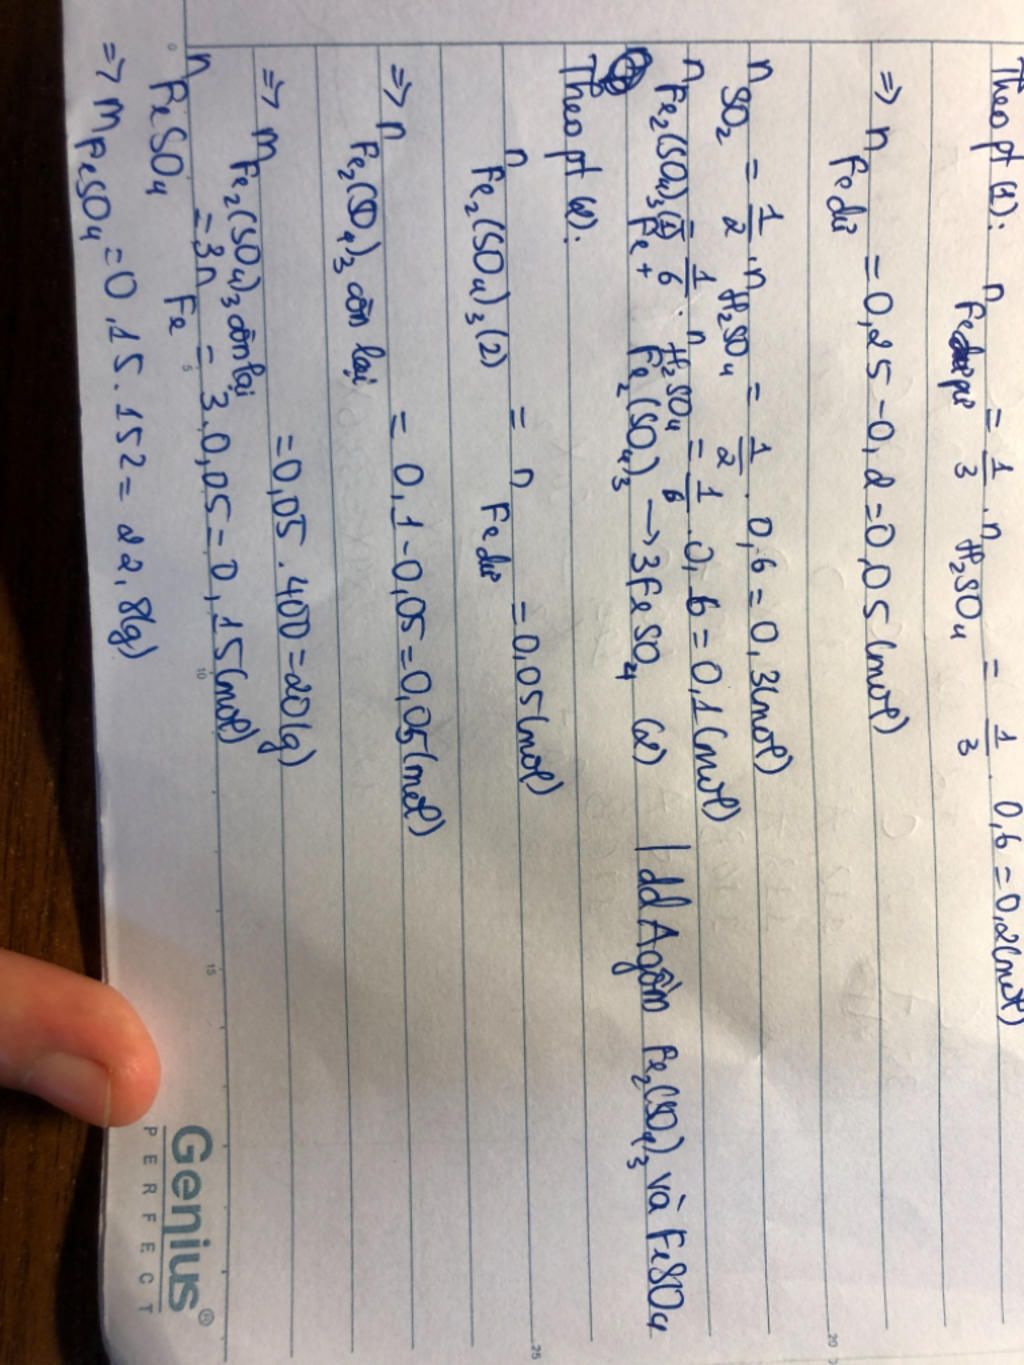 Theo pt (1): nFe pứ = 1/3 . nH₂SO₄ = 1/3 . 0,6 = 0,2(mol)
=> nFe dư = 0,25 - 0,2 = 0,05 (mol)
nSO₂ = 1/2 . nH₂SO₄ = 1/2 . 0,6 = 0,3(mol)
nFe₂(SO₄)₃(1) = 1/6 . nH₂SO₄ = 1/6 . 0,6 = 0,1(mol)
Fe + Fe₂(SO₄)₃ → 3FeSO₄ (2) | dd A gồm Fe₂(SO₄)₃ và FeSO₄
Theo pt (2):
nFe₂(SO₄)₃(2) = nFe dư = 0,05(mol)
=> nFe₂(SO₄)₃ còn lại = 0,1 - 0,05 = 0,05(mol)
=> mFe₂(SO₄)₃ còn lại = 0,05 . 400 = 20(g)
nFeSO₄ = 3nFe = 3.0,05 = 0,15(mol)
=> mFeSO₄ = 0,15.152 = 22,8(g)
0 5 10 15 20 25
Genius®
PERFECT